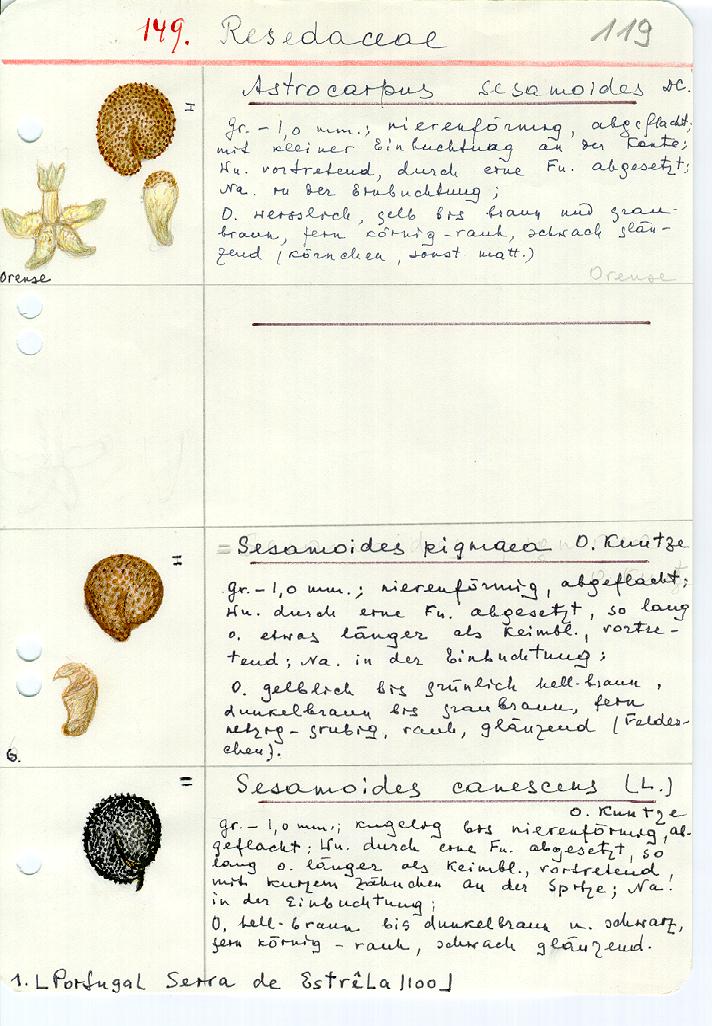 149. Resedaceae 119
Astrocarpus sesamoides DC.
gr. - 1,0 mm.; nierenförmig, abgeflacht;
mit kleiner Einbuchtung an der Kante;
Wu. vortretend, durch eine Fu. abgesetzt;
Na. in der Einbuchtung;
O. weisslich, gelb bis braun und grau-
braun, fein körnig-rauh, schwach glän-
zend (körnchen, sonst matt.)
Orense
Orense
= Sesamoides pigmaea O. Kuntze
gr. - 1,0 mm.; nierenförmig, abgeflacht;
Wu. durch eine Fu. abgesetzt, so lang
o. etwas länger als Keimbl., vortre-
tend; Na. in der Einbuchtung;
O. gelblich bis grünlich hell-braun,
dunkelbraun bis graubraun, fein
netzig-grubig, rauh, glänzend (Felder-
chen).
G.
Sesamoides canescens (L.)
O. Kuntze
gr. - 1,0 mm.; kugelig bis nierenförmig, ab-
geflacht; Wu. durch eine Fu. abgesetzt, so
lang o. länger als Keimbl., vortretend,
mit kurzem Zähnchen an der Spitze; Na.
in der Einbuchtung;
O. hell-braun bis dunkelbraun u. schwarz,
fein körnig - rauh, schwach glänzend.
1. [Portugal Serra de Estrêla 1100]